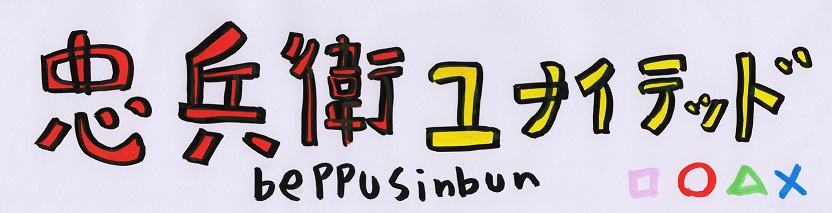 忠兵衛ユナイテッド
bePPUsinbun □○△×